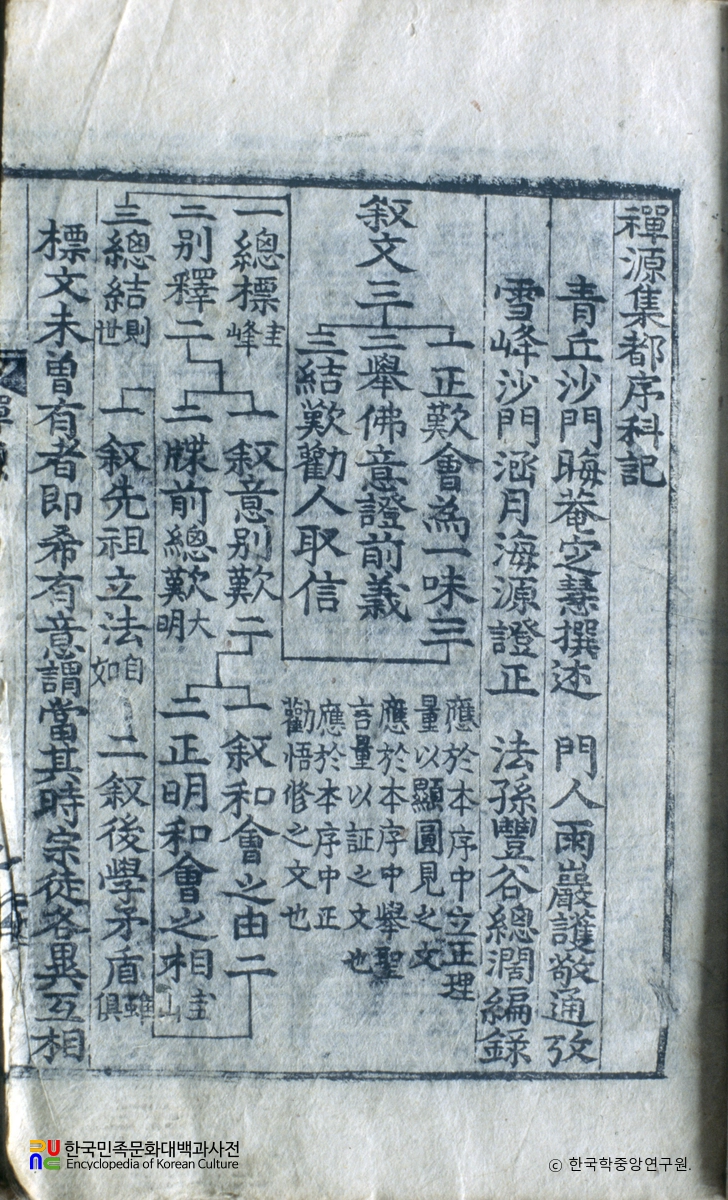 禪源集都序科記
青丘沙門晦菴定慧撰述 門人雨巖護敬通攷
雪峰沙門涵月海源證正 法孫豐谷總濶編錄
一正歎會為一味三
應於本序中立正理
量以顯圓見之文
叙文三
二舉佛意證前義
應於本序中舉聖
言量以証之文也
三結歎勸人取信
應於本序中正
勸悟修之文也
一總標圭峰
一叙意別歎二
一叙和會之由二
二別釋二
二牒前總歎大明
二正明和會之相圭山
三總結則世
一叙先祖立法自如
二叙後學矛盾雖俱
標文未曾有者即希有意謂當其時宗徒各異互相
한국민족문화대백과사전
Encyclopedia of Korean Culture
ⓒ 한국학중앙연구원.